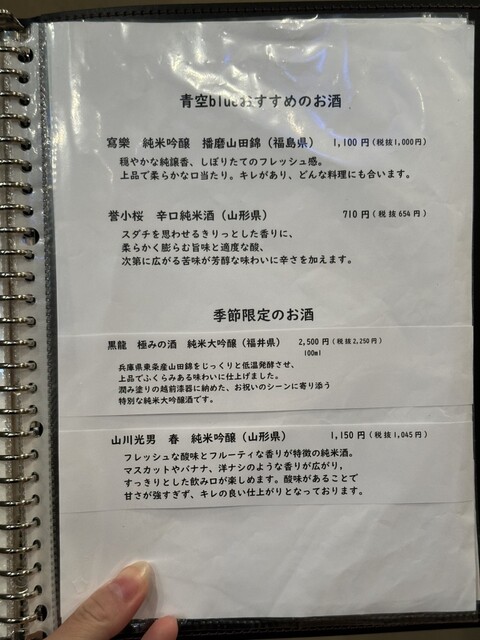 青空blueおすすめのお酒
寫樂 純米吟醸 播磨山田錦(福島県) 1,100円(税抜1,000円)
穏やかな純醸香、しぼりたてのフレッシュ感。
上品で柔らかな口当たり。キレがあり、どんな料理にも合います。
誉小桜 辛口純米酒(山形県) 710円(税抜654円)
スダチを思わせるきりっとした香りに、
柔らかく膨らむ旨味と適度な酸、
次第に広がる苦味が芳醇な味わいに辛さを加えます。
季節限定のお酒
黒龍 極みの酒 純米大吟醸(福井県) 2,500円(税抜2,250円)
100ml
兵庫県東条産山田錦をじっくりと低温発酵させ、
上品でふくらみある味わいに仕上げました。
潤み塗りの越前漆器に納めた、お祝いのシーンに寄り添う
特別な純米大吟醸酒です。
山川光男 春 純米吟醸(山形県) 1,150円(税抜1,045円)
フレッシュな酸味とフルーティな香りが特徴の純米酒。
マスカットやバナナ、洋ナシのような香りが広がり,
すっきりとした飲み口が楽しめます。酸味があることで
甘さが強すぎず、キレの良い仕上がりとなっております。